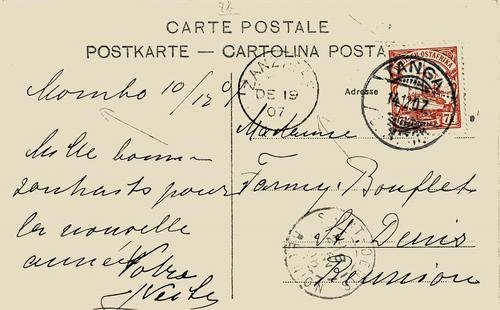 CARTE POSTALE
POSTKARTE — CARTOLINA POSTA
Adresse
TANGA
14.12.07
ZANZIBAR
DE 19
07
OSTAFRIKA
7½
Mombo 10/12 07
Mille bons
souhaits pour
la nouvelle
année
Votre
Madame
Fanny Bouflet
St. Denis
Réunion